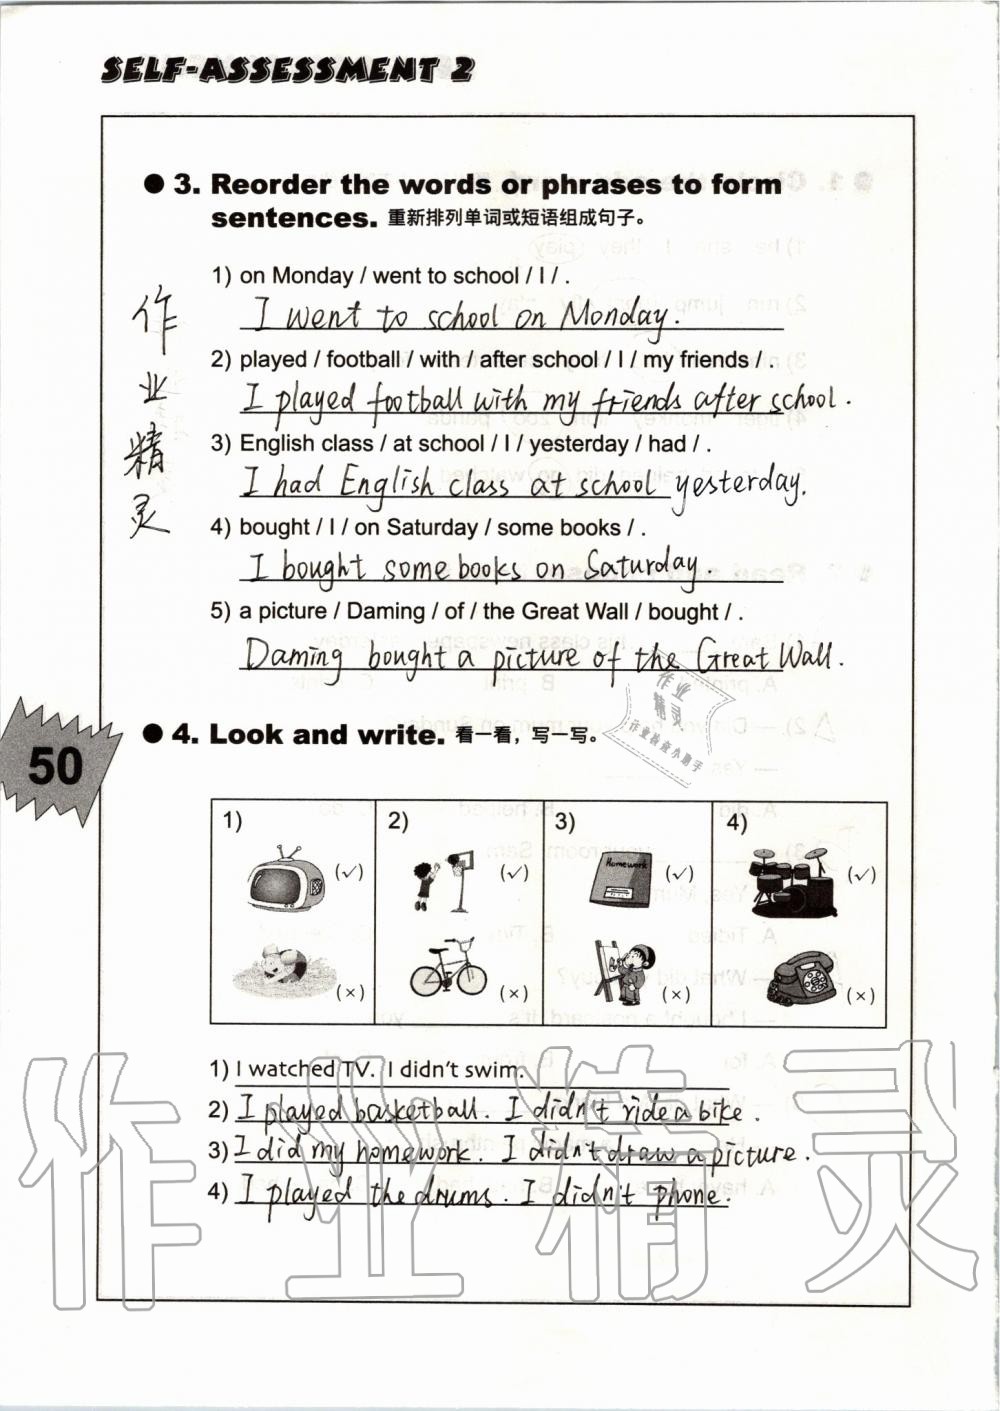 SELF-ASSESSMENT 2
● 3. Reorder the words or phrases to form
sentences. 重新排列单词或短语组成句子。
1) on Monday / went to school / I / .
I went to school on Monday.
2) played / football / with / after school / I / my friends / .
I played football with my friends after school.
3) English class / at school / I / yesterday / had / .
I had English class at school yesterday.
4) bought / I / on Saturday / some books / .
I bought some books on Saturday.
5) a picture / Daming / of / the Great Wall / bought / .
Daming bought a picture of the Great Wall.
作业精灵
作业
精灵
作业检查小助手
50
● 4. Look and write. 看一看，写一写。
1) 2) 3) 4)
Homework
(✓) (✓) (✓) (✓)
(×) (×) (×) (×)
1) I watched TV. I didn't swim.
2) I played basketball. I didn't ride a bike.
3) I did my homework. I didn't draw a picture.
4) I played the drums. I didn't phone.
作业精灵